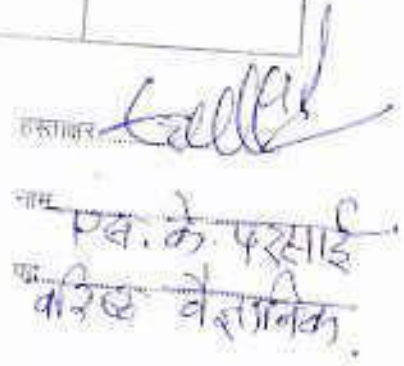 हस्ताक्षर
नाम एस. के. परसाई
पद वरिष्ठ वैज्ञानिक